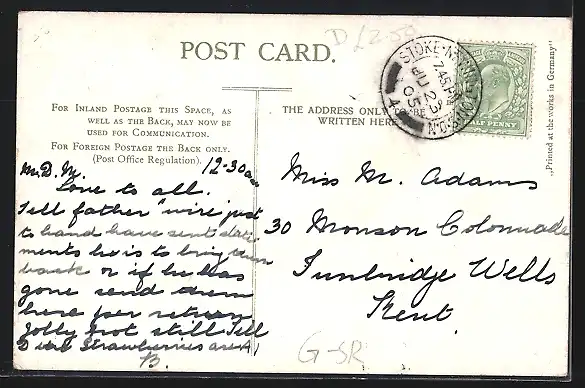 D £2.50
POST CARD.
STOKE-N-NEWINGTON.S.O.N
7.45 PM
JU 23
05
HALF PENNY
„Printed at the works in Germany"
FOR INLAND POSTAGE THIS SPACE, AS
WELL AS THE BACK, MAY NOW BE
USED FOR COMMUNICATION.
FOR FOREIGN POSTAGE THE BACK ONLY.
(Post Office Regulation).
THE ADDRESS ONLY TO BE
WRITTEN HERE
12-30
M. D. M.
Love to all.
Tell father "wire just
to hand have sent state
ments he is to bring them
back or if he has
gone send them
here per return
Jolly hot still Tell
D the Strawberries are A1
B.
Miss M. Adams
30 Monson Colonnade
Tunbridge Wells
Kent.
G-SR